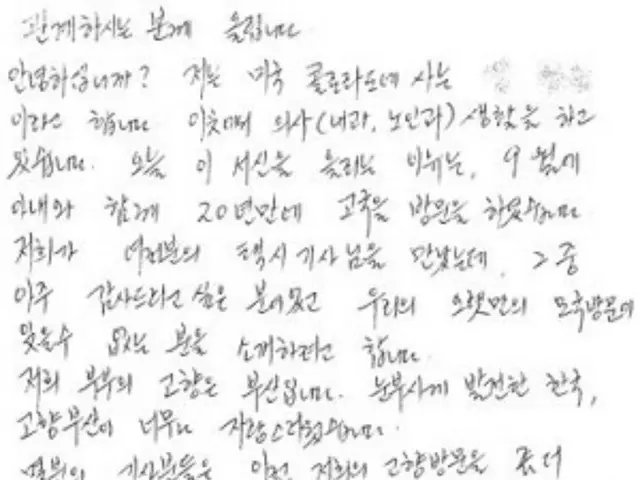 관계하시는 분께 올립니다
안녕하십니까? 저는 미국 콜로라도에 사는
이라고 합니다. 의사(내과, 노인과) 생활을 하고
있습니다. 오늘 이 서신을 올리는 이유는, 9월에
아내와 함께 20년만에 고국을 방문을 하였습니다.
저희가 택시 기사님을 만났는데, 그 중
아주 감사드리고 싶은 분이 있고 우리의 오랫만의 모국방문에
잊을수 없는 분을 소개하려고 합니다.
저희 부부의 고향은 부산입니다. 눈부시게 발전한 한국,
고향부산이 너무나 자랑스러웠습니다.
기사분들은 이런 저희의 고향방문을 좀 더